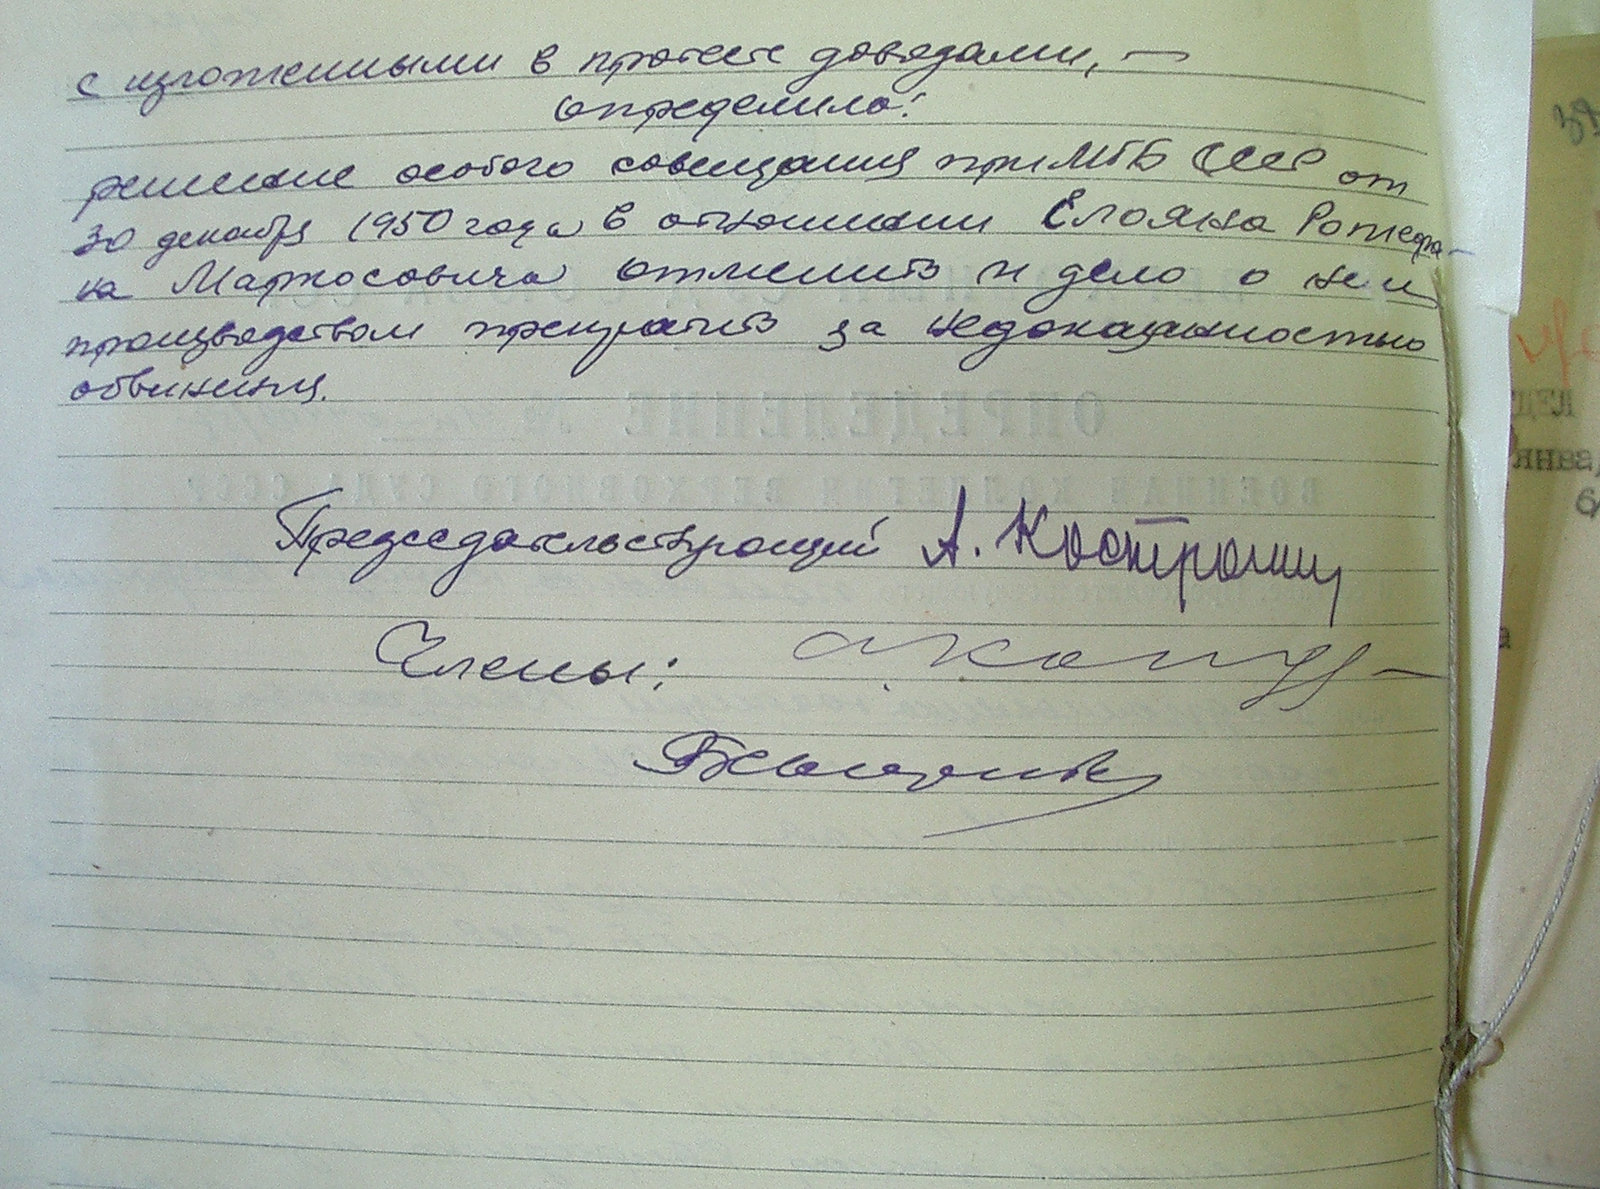 с изложенными в протесте доводами, —
определила:
решение особого совещания при МГБ СССР от
30 декабря 1950 года в отношении Елояна
на Маркосовича отменить и дело о нем
производством прекратить за недоказанностью
обвинения.
ОПРЕДЕЛЕНИЕ №
ВОЕННАЯ КОЛЛЕГИЯ ВЕРХОВНОГО СУДА СССР
Председательствующий А. Костромин
Члены:
янва